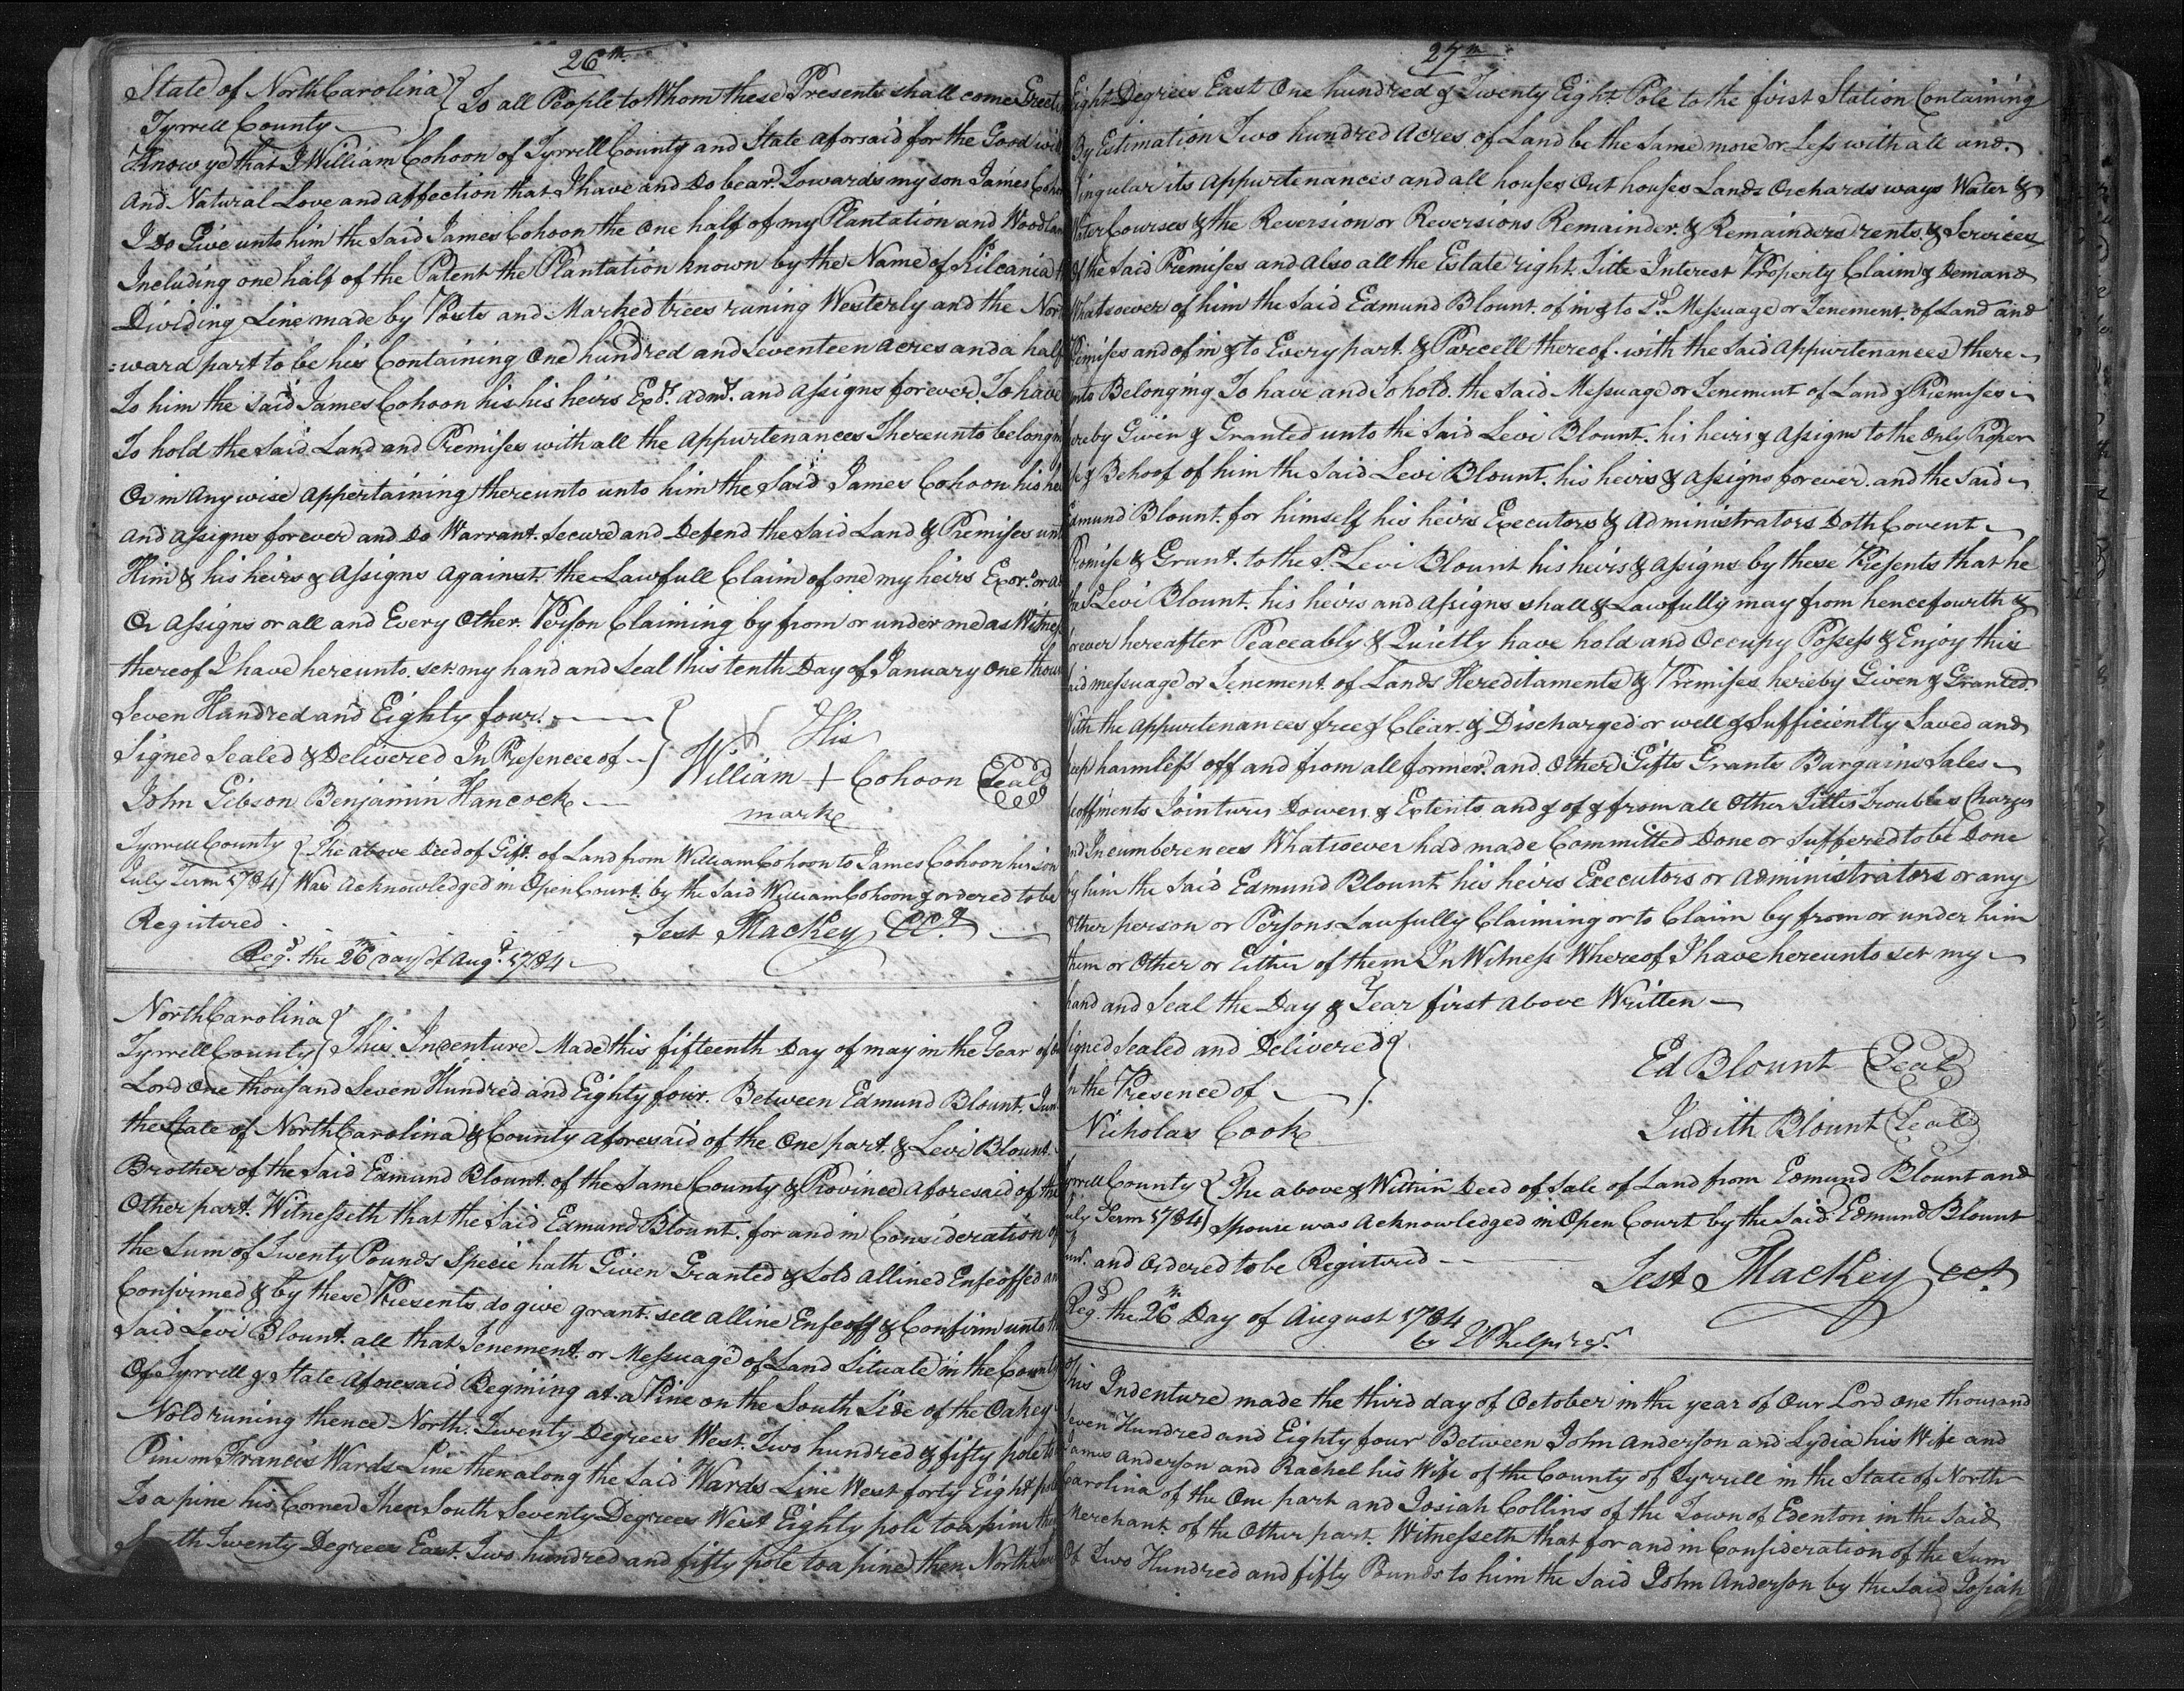 26th
State of North Carolina } To all People to Whom these Presents shall come Greeti
Tyrrell County
Know ye that I William Cohoon of Tyrrell County and State aforsaid for the Good will
And Natural Love and affection that I have and Do bear Towards my son James Cohoo
I Do Give unto him the Said James Cohoon the One half of my Plantation and Woodlan
Including one half of the Patent the Plantation known by the Name of Kilcania
Dividing Line made by Posts and Marked trees runing Westerly and the Nor
=ward part to be his Containing One hundred and Seventeen acres and a half
To him the said James Cohoon his his heirs Exd. admd. and assigns forever To have
To hold the Said Land and Premises with all the appurtenances Thereunto belongin
Or in Any wise appertaining thereunto unto him the Said James Cohoon his hei
and assigns forever and Do Warrant Secure and Defend the Said Land & Premises unto
Him & his heirs & Assigns Against the Lawfull Claim of me my heirs Exors. or a
Or Assigns or all and Every Other Person Claiming by from or under me as Witness
thereof I have hereunto set my hand and Seal this tenth Day of January One thou
Seven Hundred and Eighty four.
Signed Sealed & Delivered In Presence of
His
William + Cohoon (Seal)
mark
John Gibson Benjamin Hancock
Tyrrell County } The above Deed of Gift of Land from William Cohoon to James Cohoon his son
July Term 1784 } Was Acknowledged in Open Court by the Said William Cohoon & ordered to be
Registered Test Mackey CCt
Regd. the 26th Day of Augt. 1784
North Carolina }
Tyrrell County } This Indenture Made this fifteenth Day of may in the Year of
Lord One thousand Seven Hundred and Eighty four. Between Edmund Blount Jun
the State of North Carolina & County aforesaid of the One part & Levi Blount
Brother of the Said Edmund Blount of the Same County & Province aforesaid of the
Other part. Witnesseth that the Said Edmund Blount for and in Consideration of
the Sum of Twenty Pounds Specie hath Given Granted & Sold allined Enfeoffed an
Confirmed & by these Presents do give grant sell alline Enfeoff & Confirm unto th
Said Levi Blount all that Tenement or Messuage of Land Situate in the County
Of Tyrrell & State aforesaid Begining at a Pine on the South Side of the Oakey
Nold runing thence North Twenty Degrees West Two hundred & fifty pole to
Pine in Francis Wards Line then along the Said Wards Line West forty Eight pole
To a pine his Corner Then South Seventy Degrees West Eighty pole to a pine then
South Twenty Degrees East Two hundred and fifty pole to a pine then North
27th
Eight Degrees East One hundred & Twenty Eight Pole to the first Station Containing
By Estimation Two hundred Acres of Land be the Same more or Less with all and
Singular its appurtenances and all houses Out houses Lands Orchards ways Water &
Water Courses & the Reversion or Reversions Remainder & Remainders rents & Services
Of the Said Premises and also all the Estate right Title Interest Property Claim & Demand
Whatsoever of him the Said Edmund Blount of in & to Sd. Messuage or Tenement of Land and
Premises and of in & to Every part & Parcell thereof with the Said Appurtenances there
unto Belonging To have and To hold the Said Messuage or Tenement of Land & Premises
hereby Given & Granted unto the Said Levi Blount his heirs & Assigns to the Only Proper
se & Behoof of him the Said Levi Blount his heirs & assigns forever and the Said
Edmund Blount for himself his heirs Executors & Administrators Doth Covent
Promise & Grant to the Sd. Levi Blount his heirs & assigns by these Presents that he
the Sd. Levi Blount his heirs and assigns shall & Lawfully may from hencefourth &
forever hereafter Peaceably & Quietly have hold and Occupy Possess & Enjoy this
said messuage or Tenement of Lands Hereditaments & Premises hereby Given & Granted
With the Appurtenances free & Clear & Discharged or well & Sufficiently Saved and
keep harmless off and from all former and Other Gifts Grants Bargains Sales
feoffments Jointures Dowers & Extents and of & from all Other Titles Troubles Charges
and Incumberences Whatsoever had made Committed Done or Suffered to be Done
by him the Said Edmund Blount his heirs Executors or Administrators or any
Other person or Persons Lawfully Claiming or to Claim by from or under him
them or Other or Either of them In Witness Whereof I have hereunto set my
hand and Seal the Day & Year first above Written
Signed Sealed and Delivered }
In the Presence of } Ed Blount (Seal)
Nicholas Cook Judith Blount (Seal)
Tyrrell County } The above & Within Deed of Sale of Land from Edmund Blount and
July Term 1784 } Spouse was Acknowledged in Open Court by the Said Edmund Blount
Junr. and Ordered to be Registered Test Mackey CCt
Regd. the 26th Day of August 1784
by Phelps regr.
This Indenture made the third day of October in the year of Our Lord One thousand
Seven Hundred and Eighty four Between John Anderson and Lydia his Wife and
James Anderson and Rachel his Wife of the County of Tyrrell in the State of North
Carolina of the One part and Josiah Collins of the Town of Edenton in the Said
Merchant of the Other part. Witnesseth that for and in Consideration of the Sum
Of Two Hundred and fifty Pounds to him the Said John Anderson by the Said Josiah